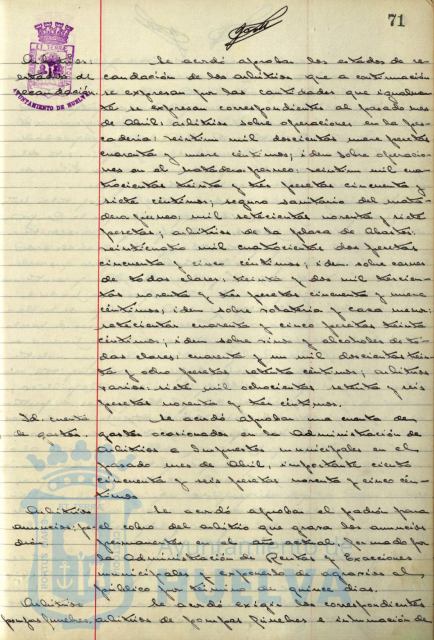 71
Arbitrios: Se acordó aprobar los estados de re-
estados de caudación de los arbitrios que a continuación
recaudación. se expresan por las cantidades que igualmen-
te se expresan correspondientes al pasado mes
de Abril: arbitrios sobre operaciones en la pes-
cadería: veintiun mil doscientas nueve pesetas
cuarenta y nueve céntimos; idem sobre operacio-
nes en el matadero: veintiun mil cua-
trocientas treinta y tres pesetas cincuenta y
siete céntimos; seguro sanitario del mata-
dero: mil setecientas noventa y siete
pesetas; arbitrios de la plaza de Abastos:
veinticuatro mil cuatrocientas dos pesetas
cincuenta y cinco céntimos; idem sobre carnes
de todas clases: treinta y dos mil trescien-
tas noventa y tres pesetas cincuenta y nueve
céntimos; idem sobre volatería y caza menor:
setecientas cuarenta y cinco pesetas treinta
céntimos; idem sobre vinos y alcoholes de to-
das clases: cuarenta y un mil doscientas trein-
ta y ocho pesetas setenta céntimos; arbitrios
varios: siete mil ochocientas setenta y seis
pesetas noventa y tres céntimos.
Id. cuenta Se acordó aprobar una cuenta de
de gastos. gastos ocasionados en la Administración de
Arbitrios e Impuestos municipales en el
pasado mes de Abril, importante ciento
cincuenta y seis pesetas noventa y cinco cén-
timos.
Arbitrios Se acordó aprobar el padrón para
anuncios; pa- el cobro del arbitrio que grava los anuncios
drón. permanentes en el año actual, formado por
la Administración de Rentas y Exacciones
municipales y exponerlo de agravios al
público por término de quince días.
Arbitrios Se acordó exigir los correspondientes
pompas fúnebres. arbitrios de pompas fúnebres e inhumación de
AYUNTAMIENTO DE HUELVA